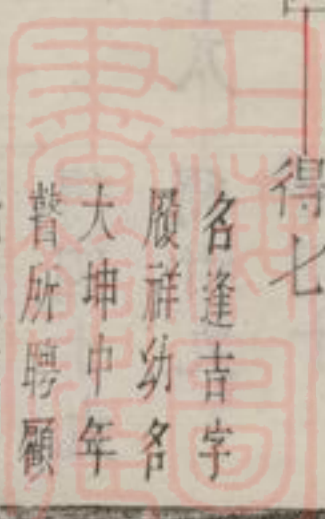 得七
名逢吉字
履祥幼名
大坤中年
瞽所聘顧